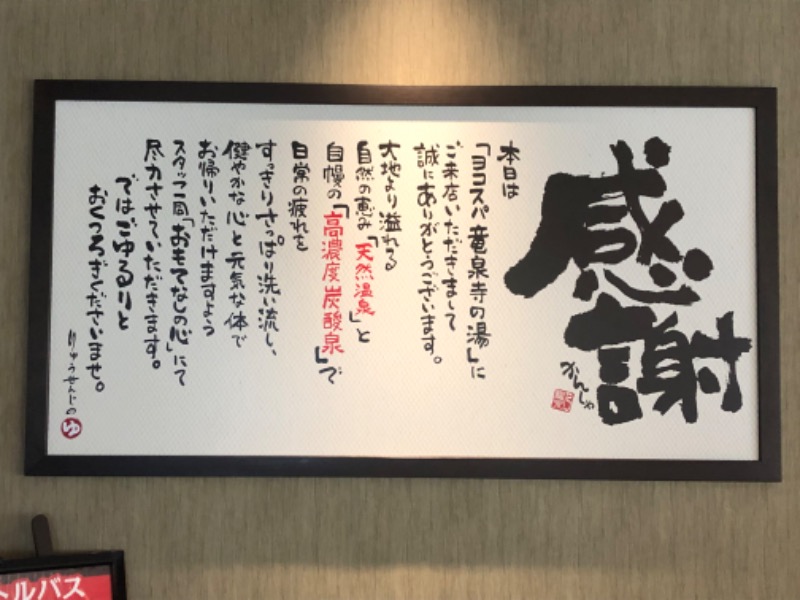 感謝
かんしゃ
本日は
「ヨコスパ 竜泉寺の湯」に
ご来店いただきまして
誠にありがとうございます。
大地より溢れる
自然の恵み「天然温泉」と
自慢の「高濃度炭酸泉」で
日常の疲れを
すっきりさっぱり洗い流し、
健やかな心と元気な体で
お帰りいただけますよう
スタッフ一同「おもてなしの心」にて
尽力させていただきます。
ではごゆるりと
おくつろぎくださいませ。
りゅうせんじの
ゆ
トルバス